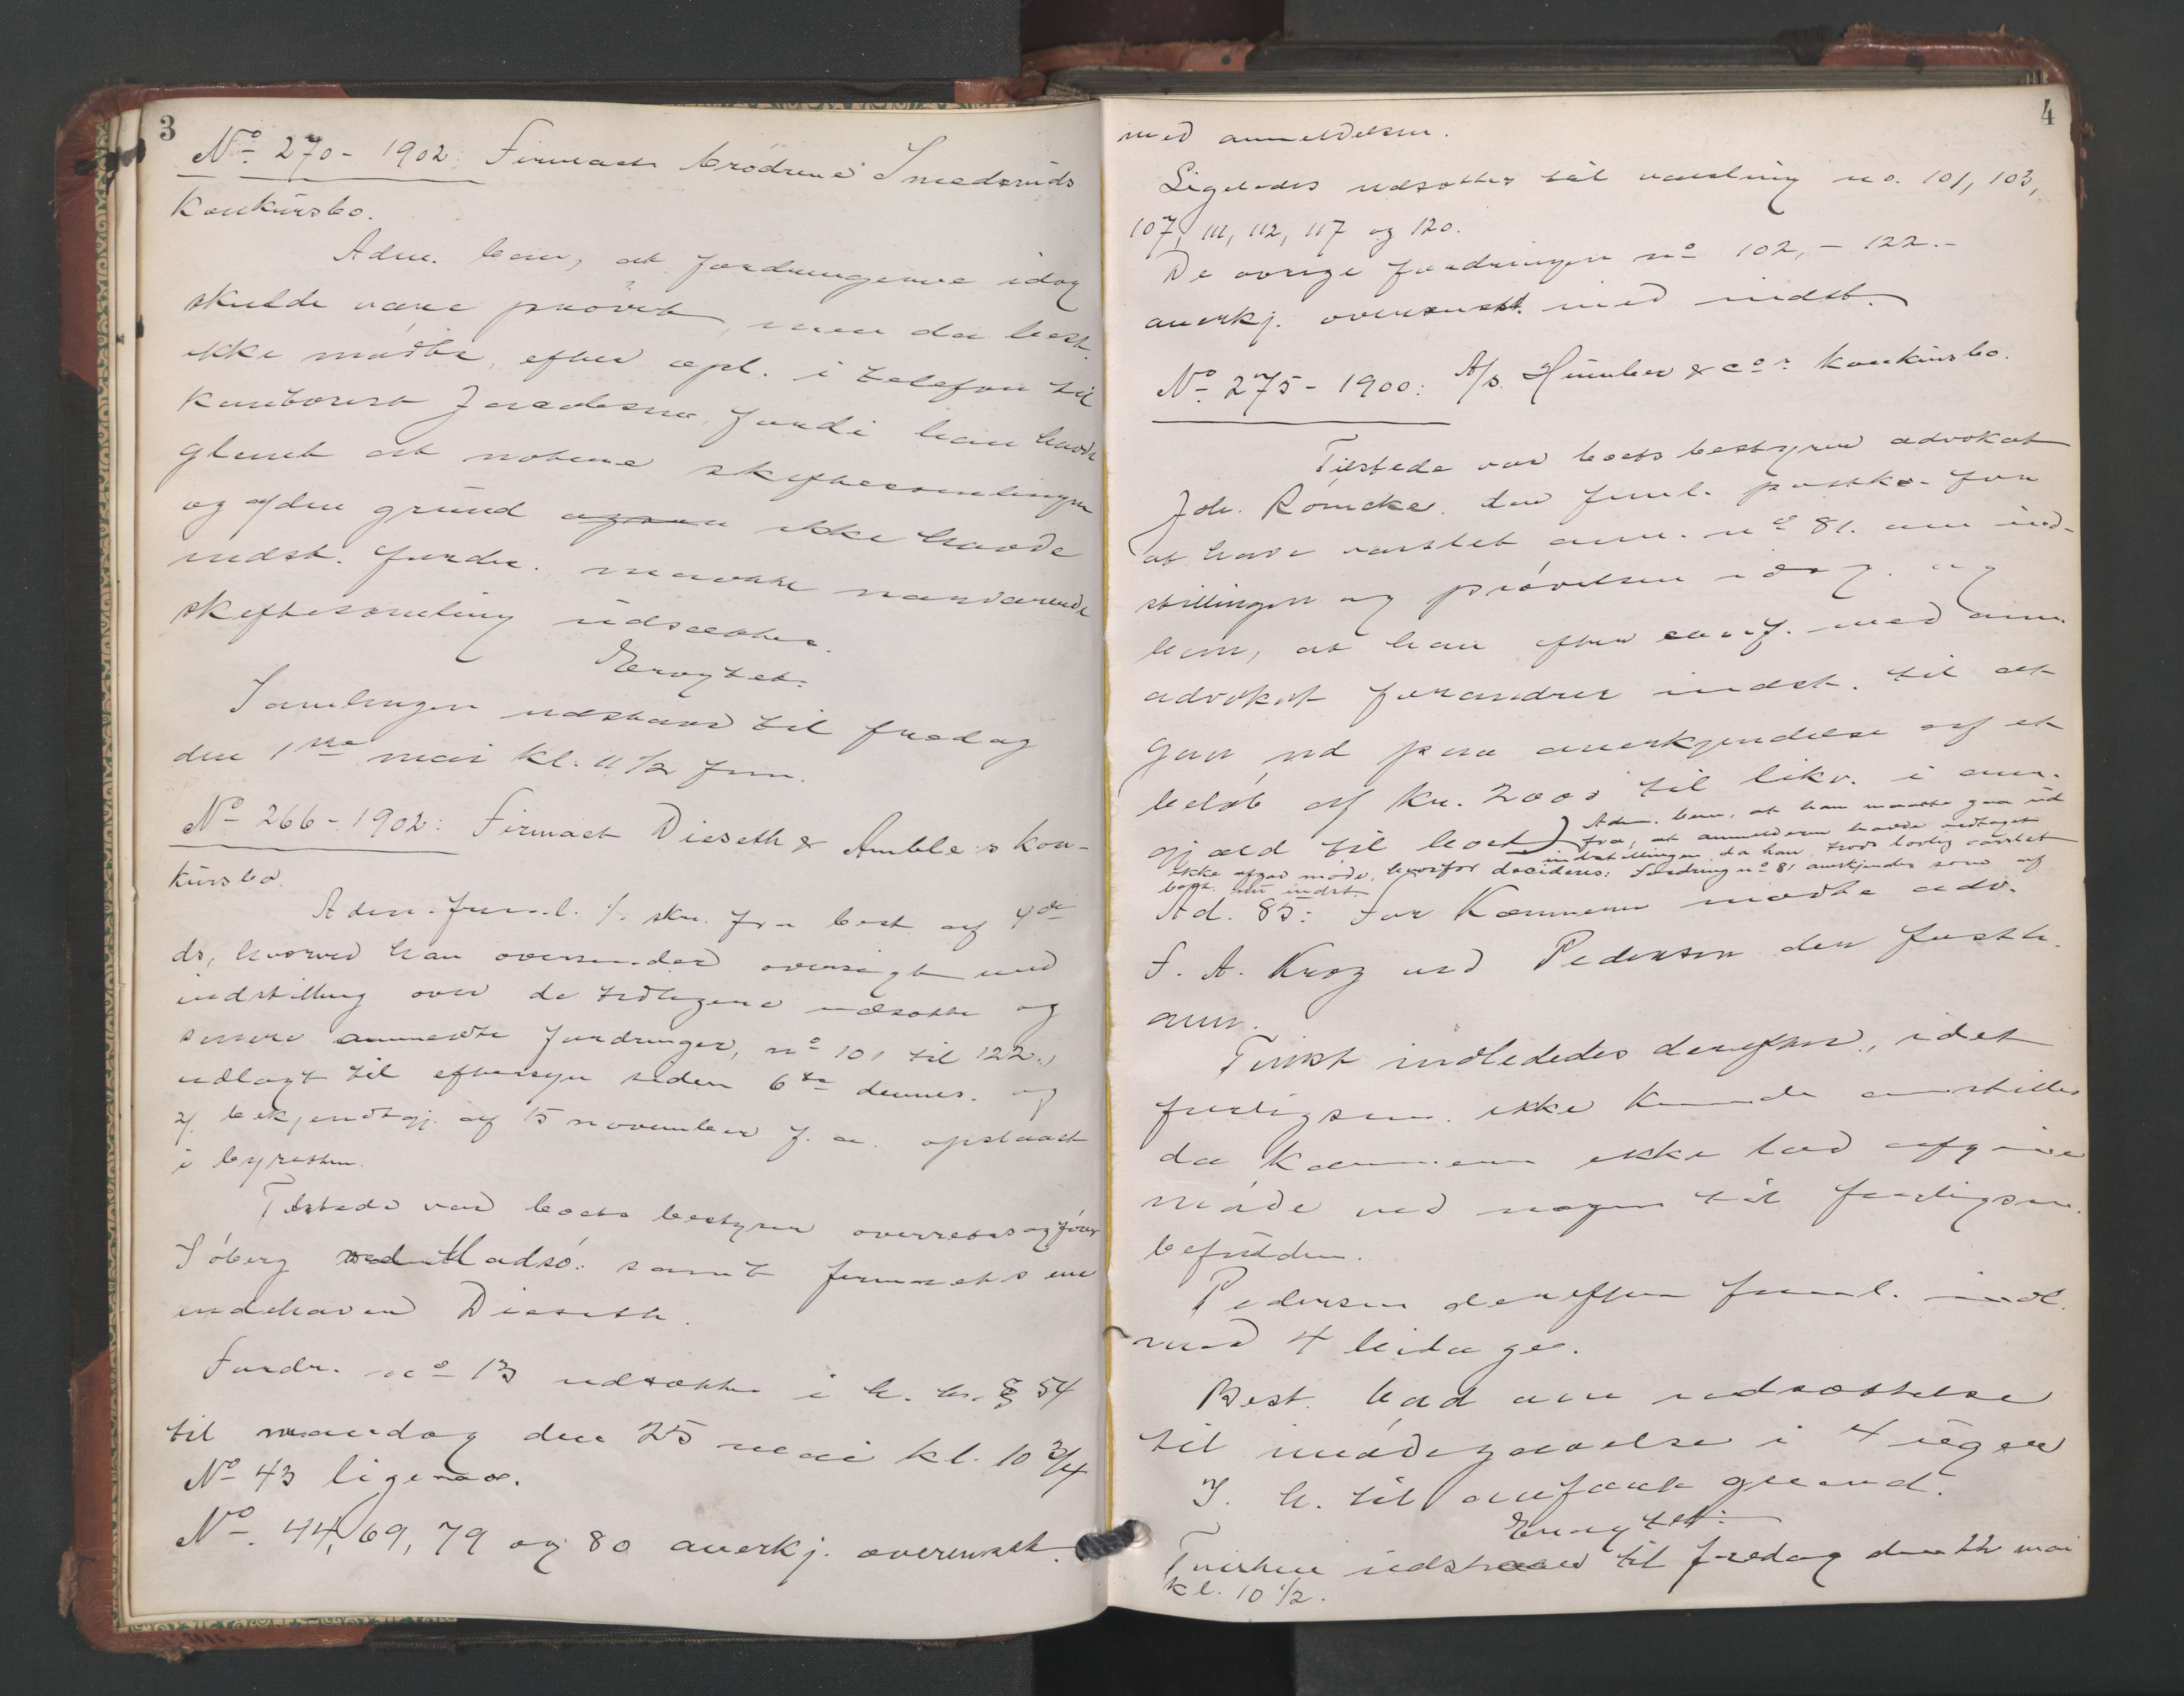 3
No 270 - 1902: Firmaet brødrene Smedsruds
konkursbo.
Adm. bem, at fordringerne idag
skulde være prøvet, men da best.
ikke mødte, efter opl. i telefon til
kontorist fordi han havde
glemt at notere skiftesamlingen
og af den grund ikke havde
indst. fordr. maatte nærværende
skiftesamling udsættes.
Eragtet:
Samlingen udstaar til fredag
den 1ste mai kl. 11 1/2 fm.
No 266 - 1902: Firmaet Dieseth & Amble's kon-
kursbo.
Adm. freml. 1/ skr. fra best. af 4de
ds, hvorved han oversender oversigt med
indstilling over de tidligere udsatte og
senere anmeldte fordringer, no 101 til 122.,
udlagt til eftersyn siden 6te dennes. og
2/ bekjendtgj. af 15 november f. a. opslaaet
i byretten.
Tilstede var boets bestyrer overretssagfører
Søberg ved Madsø: samt firmaets ene
indehaver Dieseth.
Fordr. no 13 udsættes i h. t. § 54
til mandag den 25 mai kl. 10 3/4
No 43 ligesaa.
No 44, 69, 79 og 80 anerkj. overensst.
4
med anmeldelsen.
Ligeledes udsættes til varsling no. 101, 103,
107, 111, 112, 117 og 120.
De øvrige fordringer no 102, - 122. -
anerkj. overensst. med indst.
No 275 - 1900: A/s. Humber & co's konkursbo.
Tilstede var boets bestyrer advokat
Joh. Römcke. der freml. postkv. for
at have varslet anm. no 81. om ind-
stillingen og prøvelsen idag. og
bem, at han efter conf. med anm.
advokat forandrer indst. til at
gaa ud paa anerkjendelse af et
beløb af kr. 2000 til likv. i anm.
gjæld til boet) Adm. bem, at han maatte gaa ud
fra, at anmelderen havde vedtaget
indstillingen, da han, trods lovlig varslet
ikke afgav møde, hvorfor decideres: Fordring no 81 anerkjendes som af
best. nu indst.
Ad. 85: For Kæmneren mødte adv.
F. A. Krog ved Pedersen der fasth.
anm.
Tvist indlededes derefter, idet
forligspr. ikke kunde anstilles
da Kæmneren ikke lod afgive
møde ved nogen til forligspr.
beføiet.
Pedersen derefter freml. indl.
med 4 bilager.
Best. bad om udsættelse
til imødegaaelse i 4 uger
I. h. til anført grund.
Eragtet:
Tvisten udstaar til fredag den 22 mai
kl. 10 1/2.